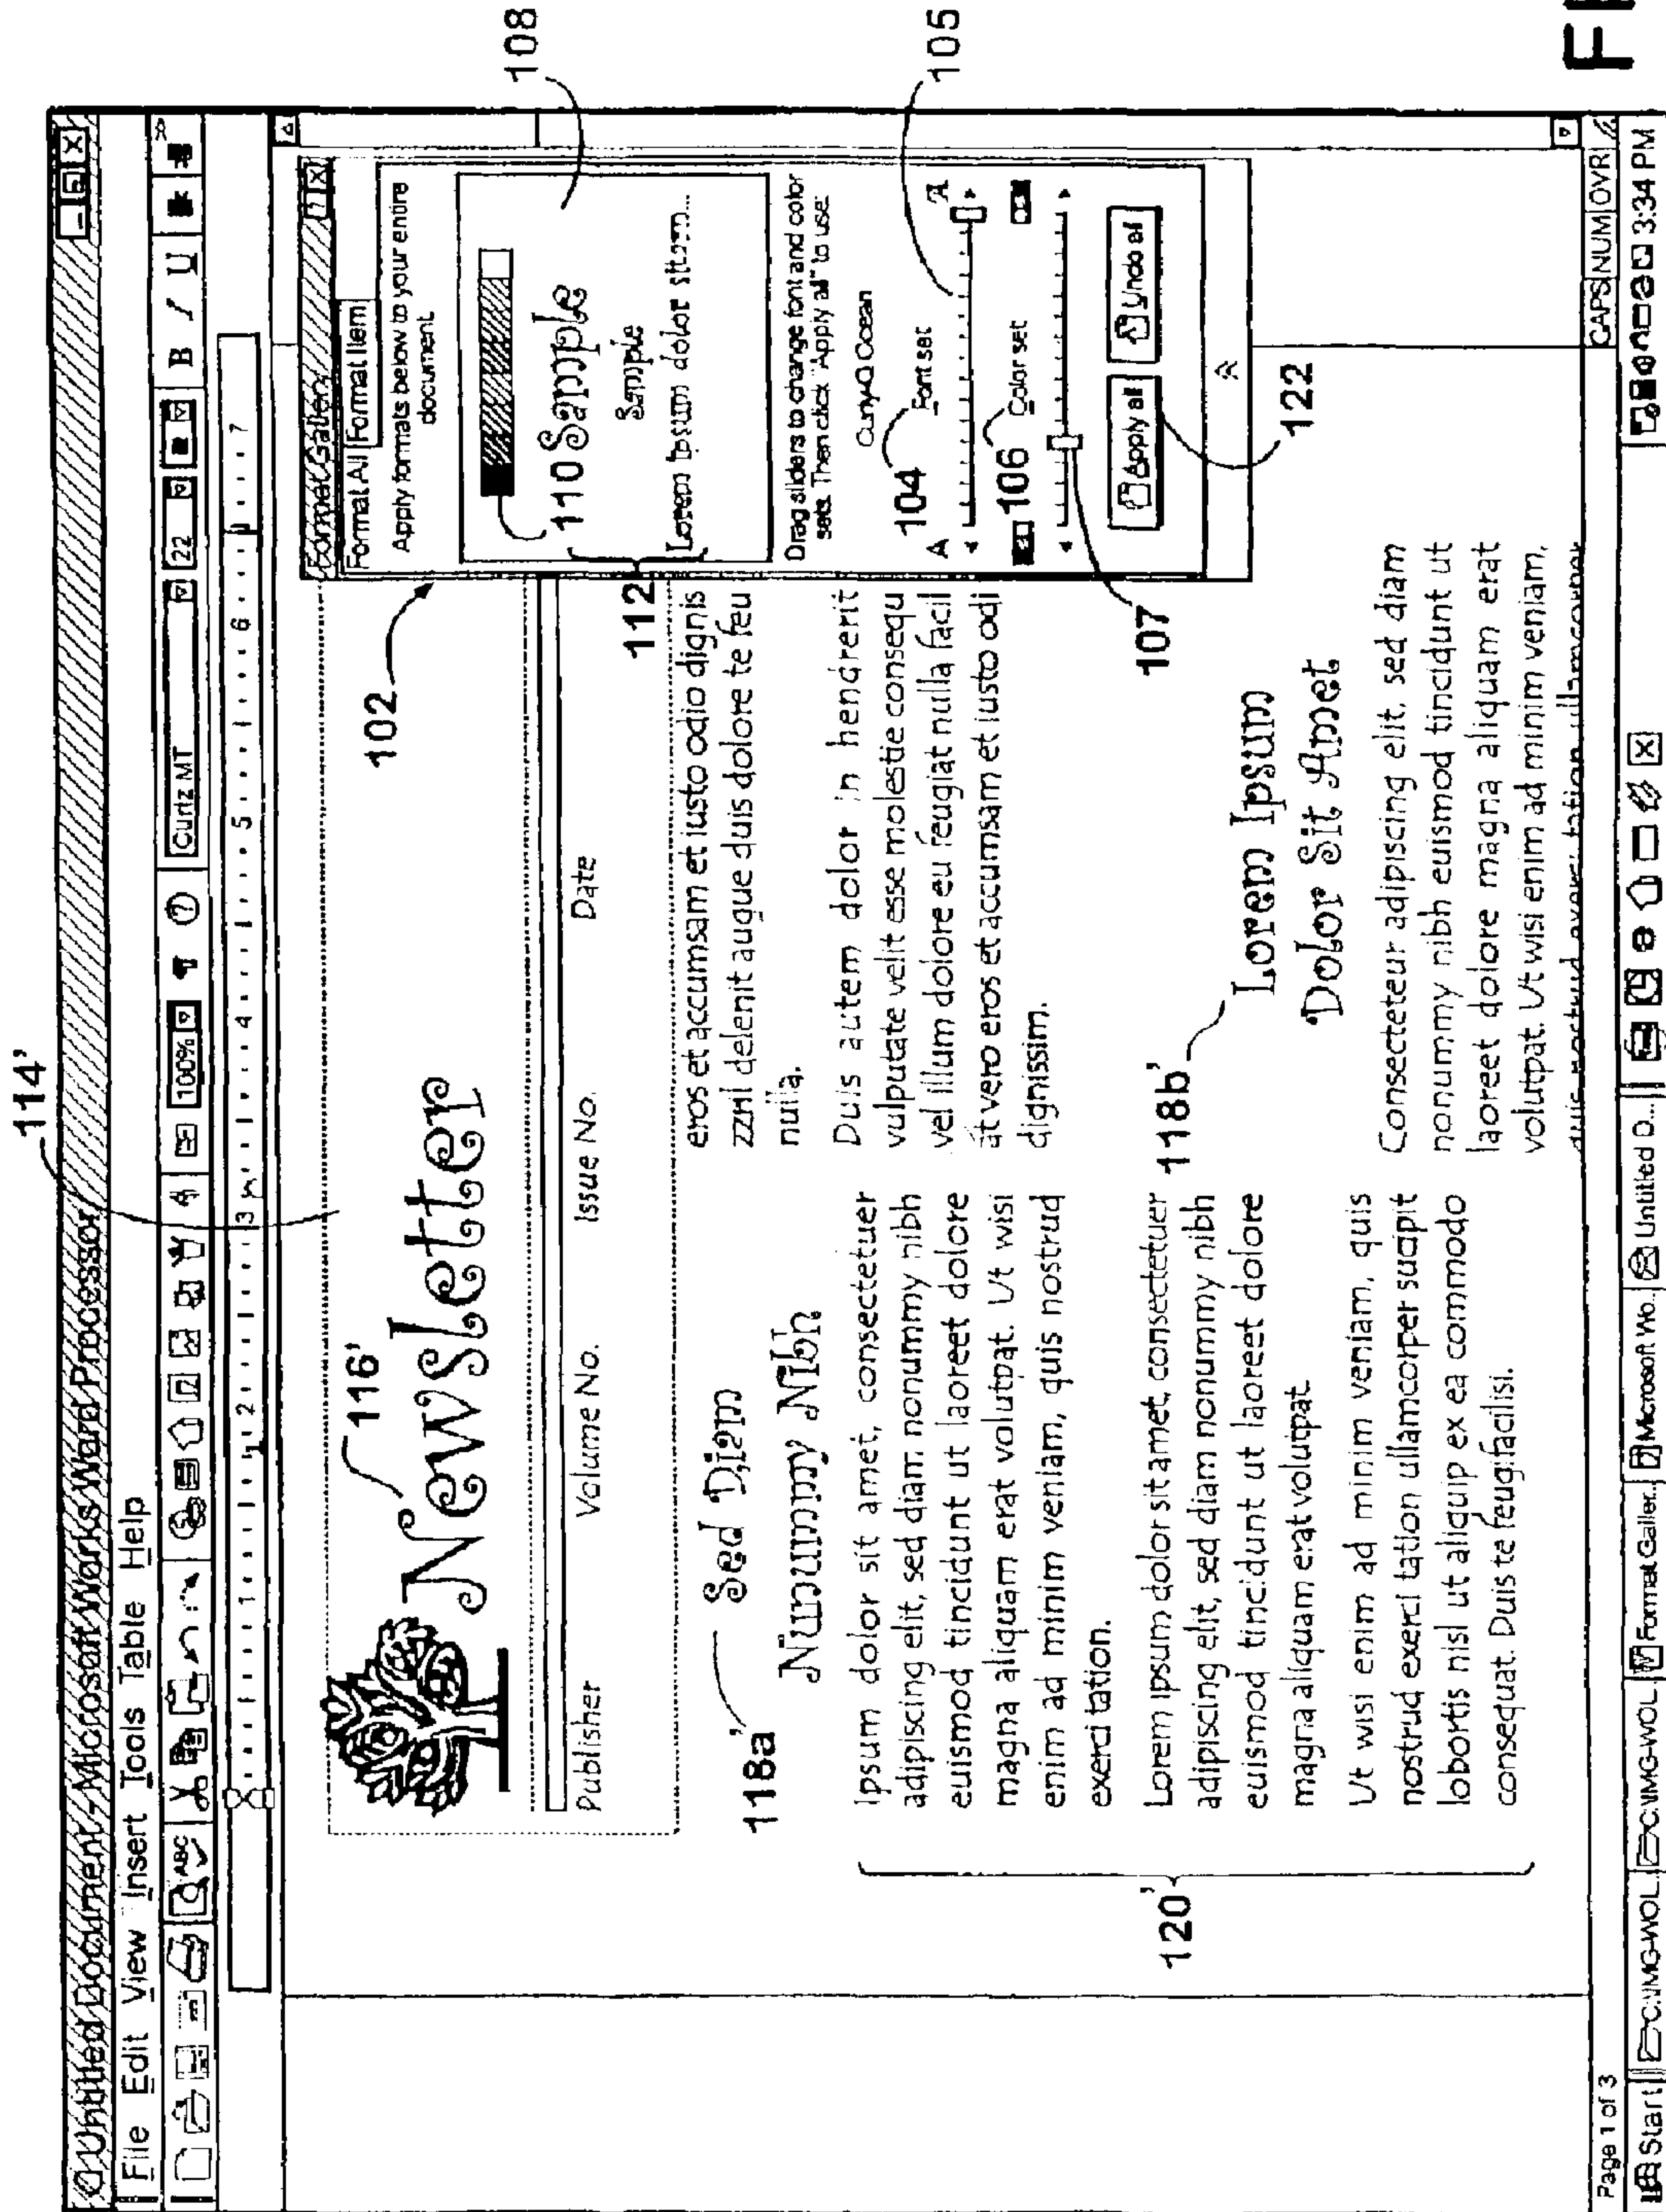 114'
Untitled Document - Microsoft Works Word Processor
File Edit View Insert Tools Table Help
ABC
100%
Curlz MT
22
B / U
1 2 3 4 5 6 7
116'
Newsletter
Publisher
Volume No.
Issue No.
Date
118a'
Sed Diam
Nunummy Nibh
Ipsum dolor sit amet, consectetuer
adipiscing elit, sed diam nonummy nibh
euismod tincidunt ut laoreet dolore
magna aliquam erat volutpat. Ut wisi
enim ad minim veniam, quis nostrud
exerci tation.
Lorem ipsum dolor sit amet, consectetuer
adipiscing elit, sed diam nonummy nibh
euismod tincidunt ut laoreet dolore
magna aliquam erat volutpat
Ut wisi enim ad minim veniam, quis
nostrud exerci tation ullamcorper sucipit
lobortis nisl ut aliquip ex ea commodo
consequat. Duis te feugifacilisi.
120'
eros et accumsam et iusto odio dignis
zzril delenit augue duis dolore te feu
nulla.
Duis autem dolor in hendrerit
vulputate velit esse molestie consequ
vel illum dolore eu feugiat nulla facil
at vero eros et accumsam et iusto odi
dignissim.
118b'
Lorem Ipsum
Dolor Sit Amet
Consecteteur adipiscing elit, sed diam
nonummy nibh euismod tincidunt ut
laoreet dolore magna aliquam erat
volutpat. Ut wisi enim ad minim veniam,
quis nostrud exerci tation ullamcorper
102
Format Gallery
Format All Format Item
Apply formats below to your entire
document
108
110
Sample
Sample
Lorem ipsum dolor sit am...
112
Drag sliders to change font and color
sets. Then click "Apply all" to use.
Curly-Q Ocean
104
Font set
A A
105
106
Color set
107
Apply all
Undo all
122
Page 1 of 3
CAPS NUM OVR
Start
C:\IMG-WOL
C:\IMG-WOL
Format Galler..
Microsoft Wo..
Untitled D...
3:34 PM
FI